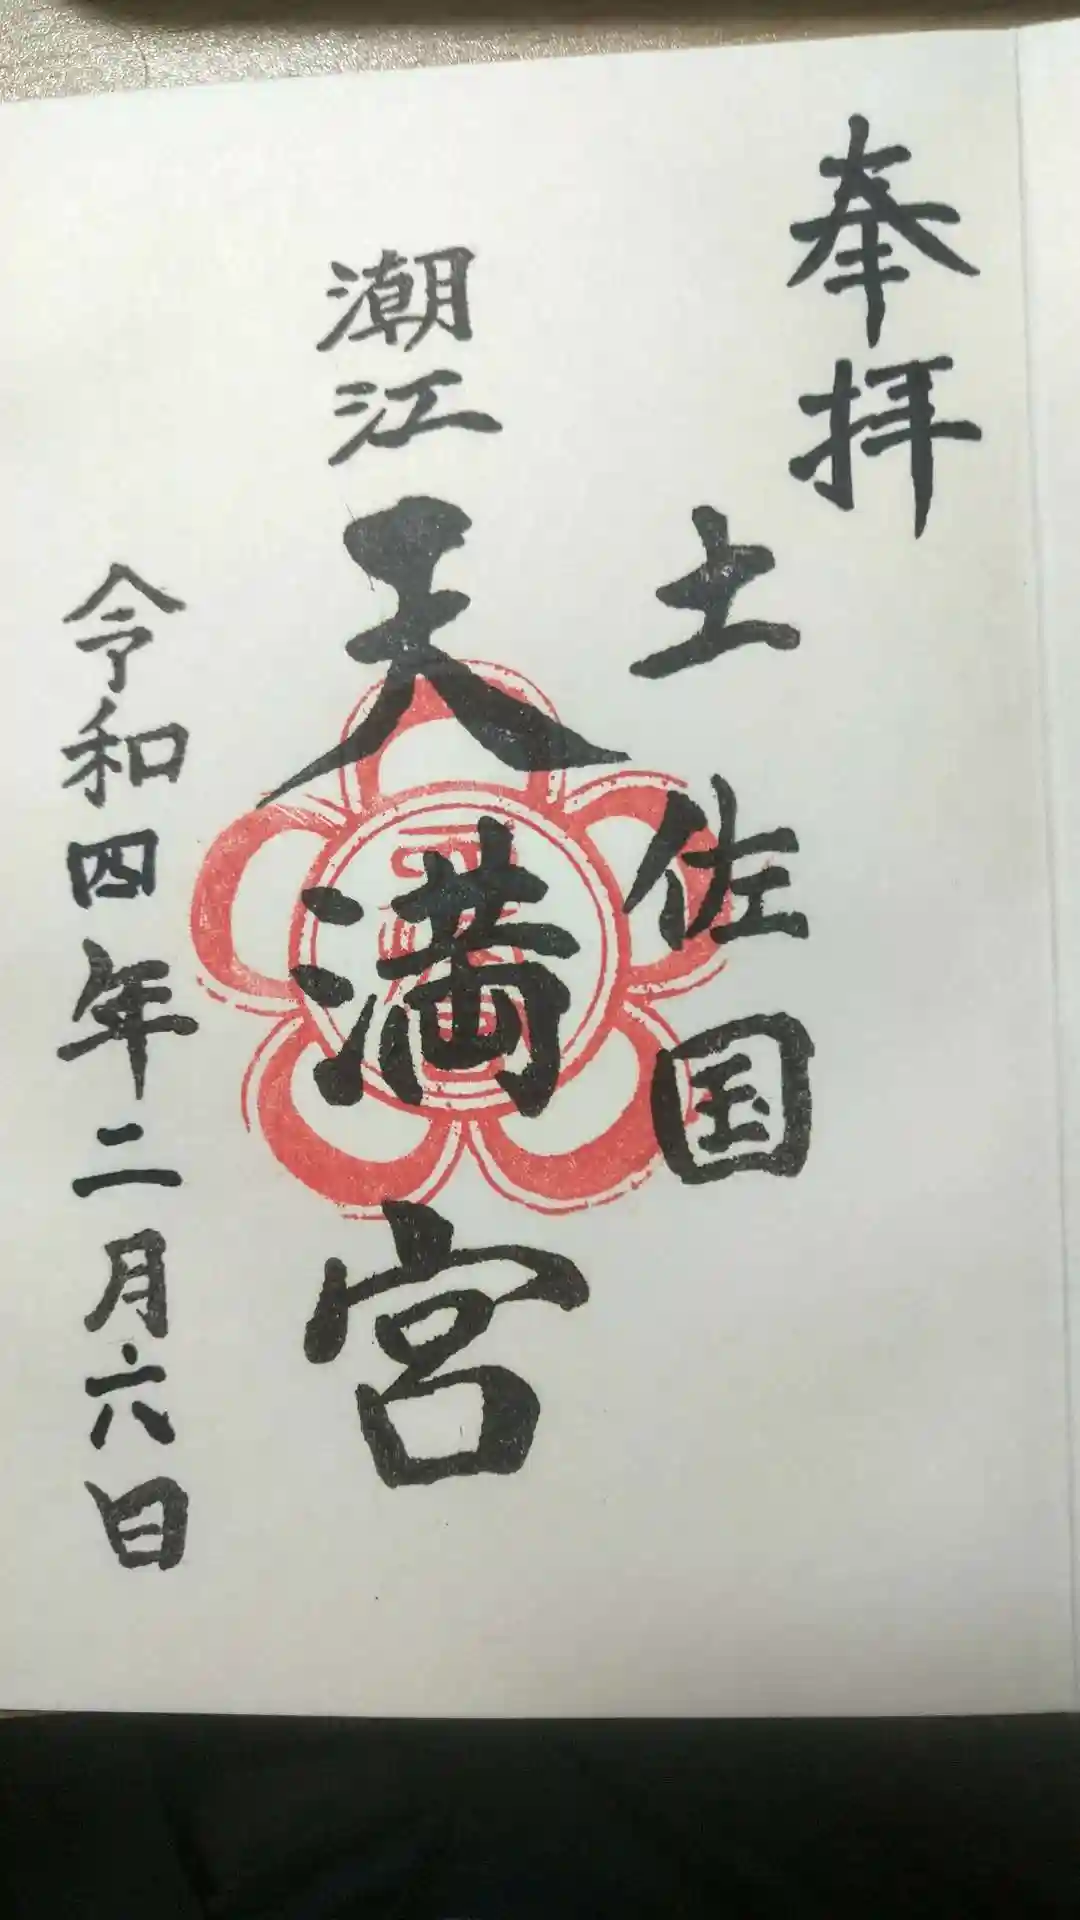 奉拝
土佐国
潮江天満宮
令和四年二月六日